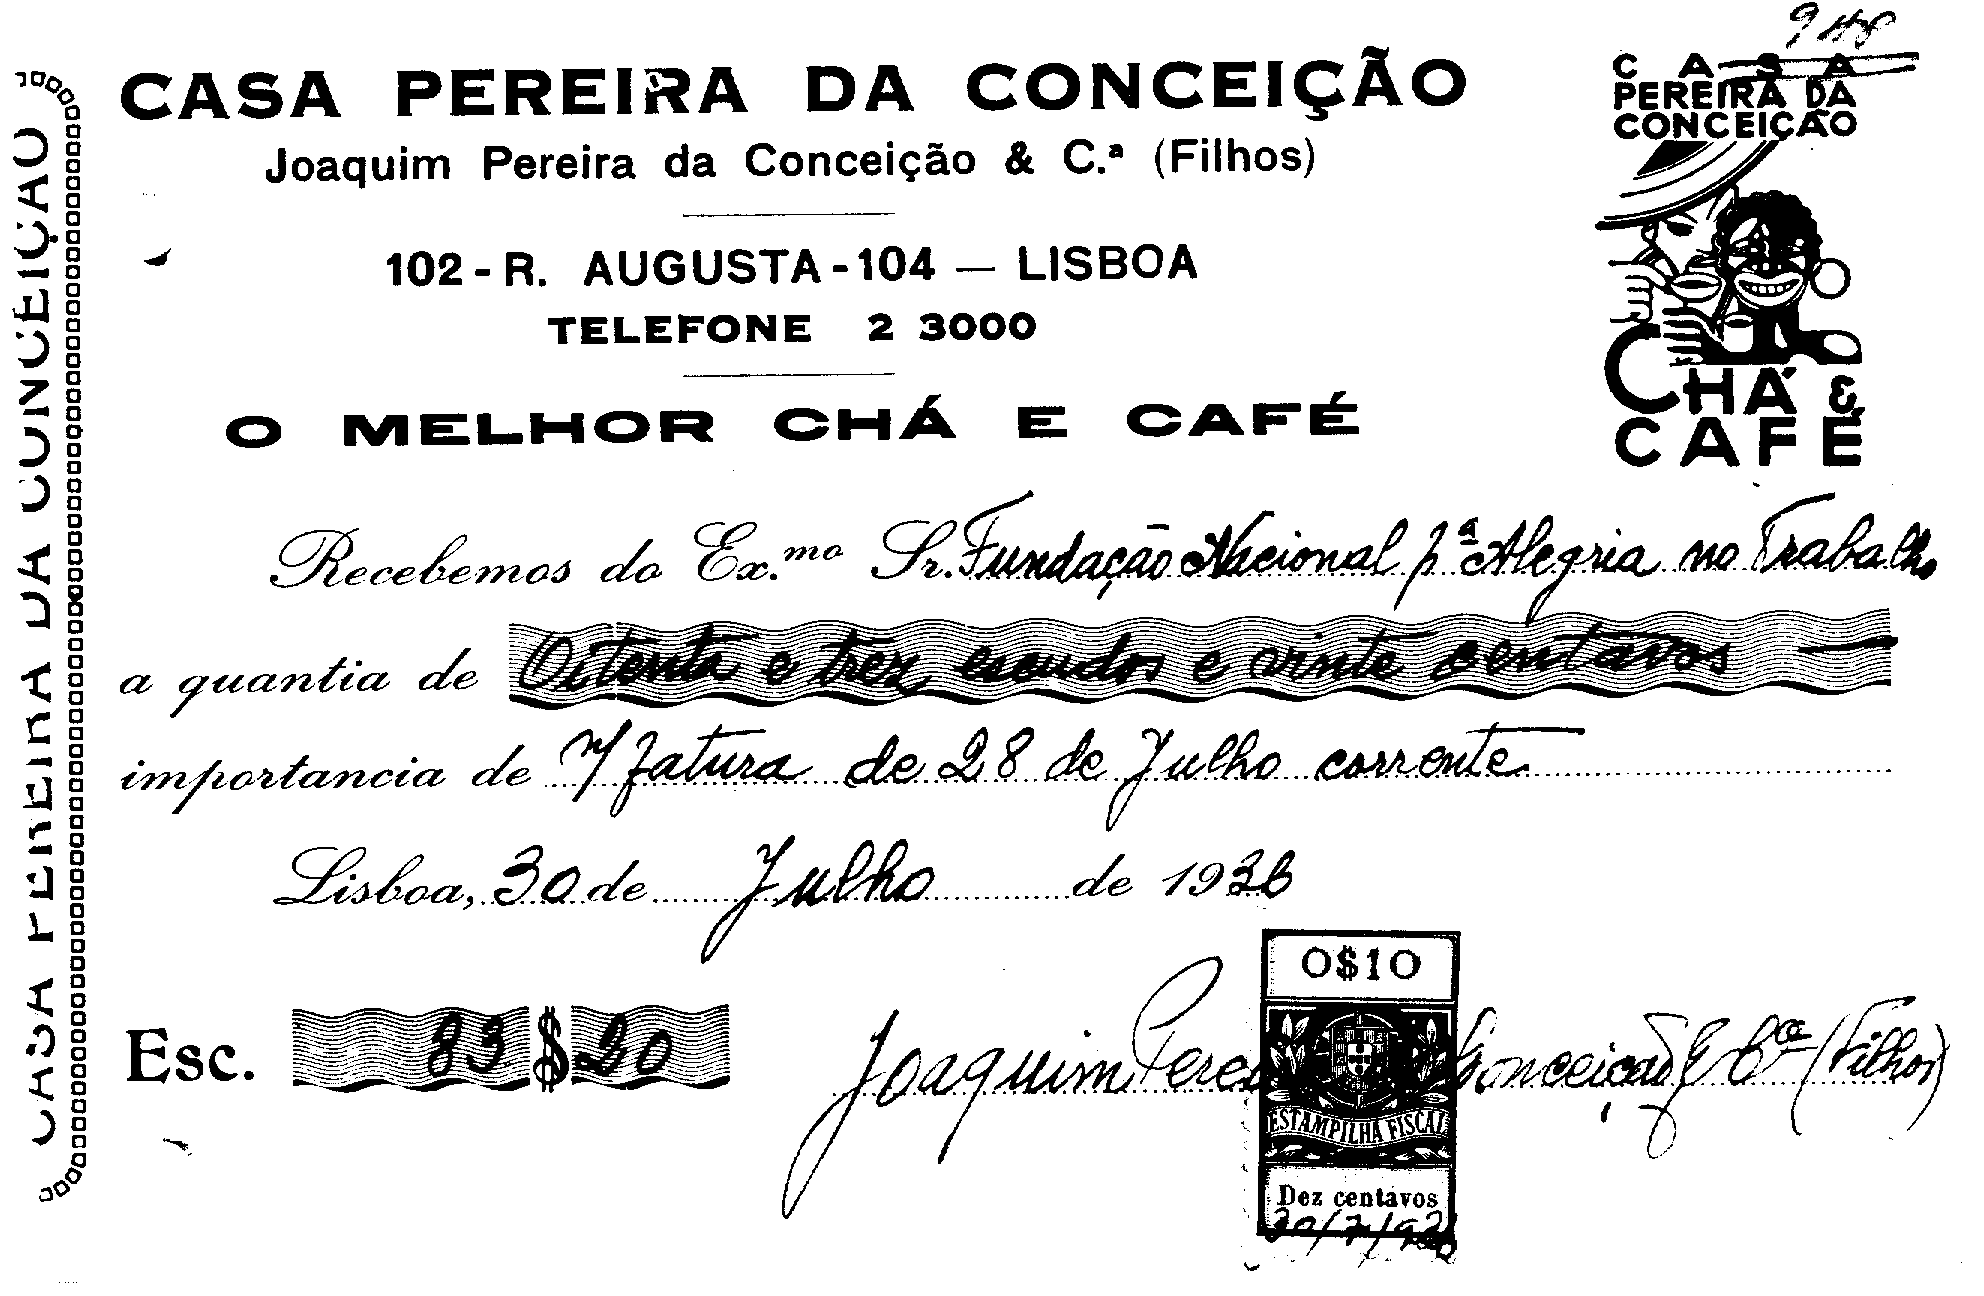 948
CASA PEREIRA DA CONCEIÇÃO
Joaquim Pereira da Conceição & C.ª (Filhos)
102 - R. AUGUSTA - 104 — LISBOA
TELEFONE 2 3000
O MELHOR CHÁ E CAFÉ
CASA
PEREIRA DA
CONCEIÇÃO
CHÁ &
CAFÉ
CASA PEREIRA DA CONCEIÇÃO
Recebemos do Ex.mo Sr. Fundação Nacional p.ª Alegria no Trabalho
a quantia de Oitenta e trez escudos e vinte centavos
importancia de n/ fatura de 28 de Julho corrente
Lisboa, 30 de Julho de 1936
Esc. 83$20
Joaquim Pereira Conceição & C.ª (Filhos)
0$10
ESTAMPILHA FISCAL
Dez centavos
30/7/936